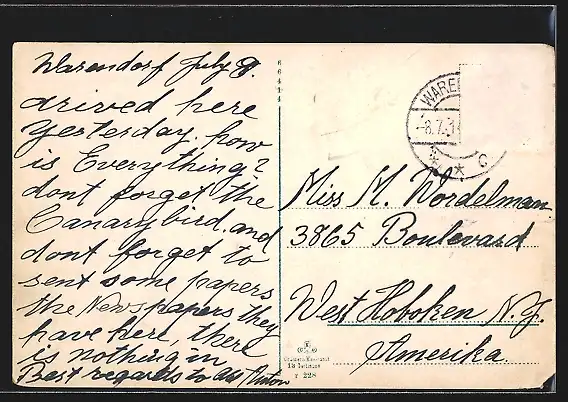 Warendorf July 9.
arived here
Yesterday. how
is Everything?
dont forget the
Canarybird. and
dont forget to
sent some papers
the Newspapers they
have here, there
is nothing in
Best regards to all Anton
66414
WARE
-8.7.3
* * C
Miss M. Wordelman
3865 Boulevard
West Hoboken N.J.
Amerika.
F 228